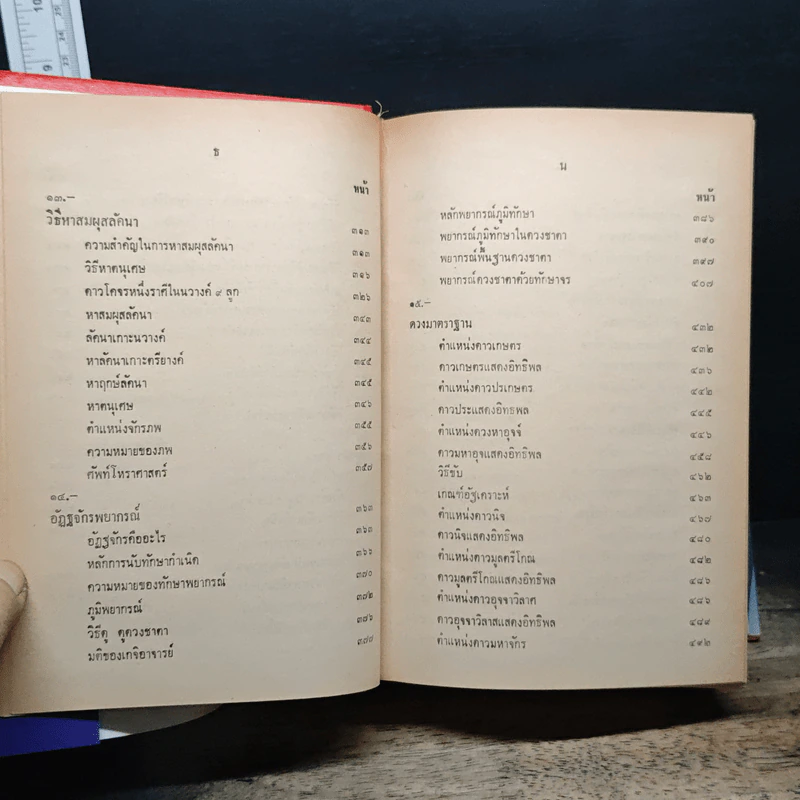 ธ
หน้า
๑๓.-
วิธีหาสมผุสลัคนา ๓๑๓
ความสำคัญในการหาสมผุสลัคนา ๓๑๓
วิธีหาตนุเศษ ๓๑๖
ดาวโคจรหนึ่งราศีในนวางค์ ๙ ลูก ๓๒๖
หาสมผุสลัคนา ๓๔๓
ลัคนาเกาะนวางค์ ๓๔๔
หาลัคนาเกาะตรียางค์ ๓๔๕
หาฤกษ์ลัคนา ๓๔๕
หาตนุเศษ ๓๔๖
ตำแหน่งจักรภพ ๓๕๕
ความหมายของภพ ๓๕๖
ศัพท์โหราศาสตร์ ๓๕๗
๑๔.-
อัฏฐจักรพยากรณ์ ๓๖๓
อัฏฐจักรคืออะไร ๓๖๓
หลักการนับทักษากำเนิด ๓๖๖
ความหมายของทักษาพยากรณ์ ๓๗๐
ภูมิพยากรณ์ ๓๗๒
วิธีดู ดูดวงชาตา ๓๗๖
มติของเกจิอาจารย์ ๓๗๗
น
หน้า
หลักพยากรณ์ภูมิทักษา ๓๘๖
พยากรณ์ภูมิทักษาในดวงชาตา ๓๙๐
พยากรณ์พื้นฐานดวงชาตา ๓๙๗
พยากรณ์ดวงชาตาด้วยทักษาจร ๔๐๗
๑๕.-
ดวงมาตราฐาน ๔๓๒
ตำแหน่งดาวเกษตร ๔๓๒
ดาวเกษตรแสดงอิทธิพล ๔๓๖
ตำแหน่งดาวปรเกษตร ๔๔๒
ดาวประแสดงอิทธิพล ๔๔๕
ตำแหน่งดวงหาอุจจ์ ๔๔๖
ดาวมหาอุจแสดงอิทธิพล ๔๕๘
วิธีขับ ๔๖๒
เกณฑ์อัฐเคราะห์ ๔๖๓
ตำแหน่งดาวนิจ ๔๖๗
ดาวนิจแสดงอิทธิพล ๔๘๐
ตำแหน่งดาวมูลตรีโกณ ๔๘๒
ดาวมูลตรีโกณแสดงอิทธิพล ๔๘๖
ตำแหน่งดาวอุจจาวิลาศ ๔๘๖
ดาวอุจจาวิลาสแสดงอิทธิพล ๔๘๙
ตำแหน่งดาวมหาจักร ๔๙๒